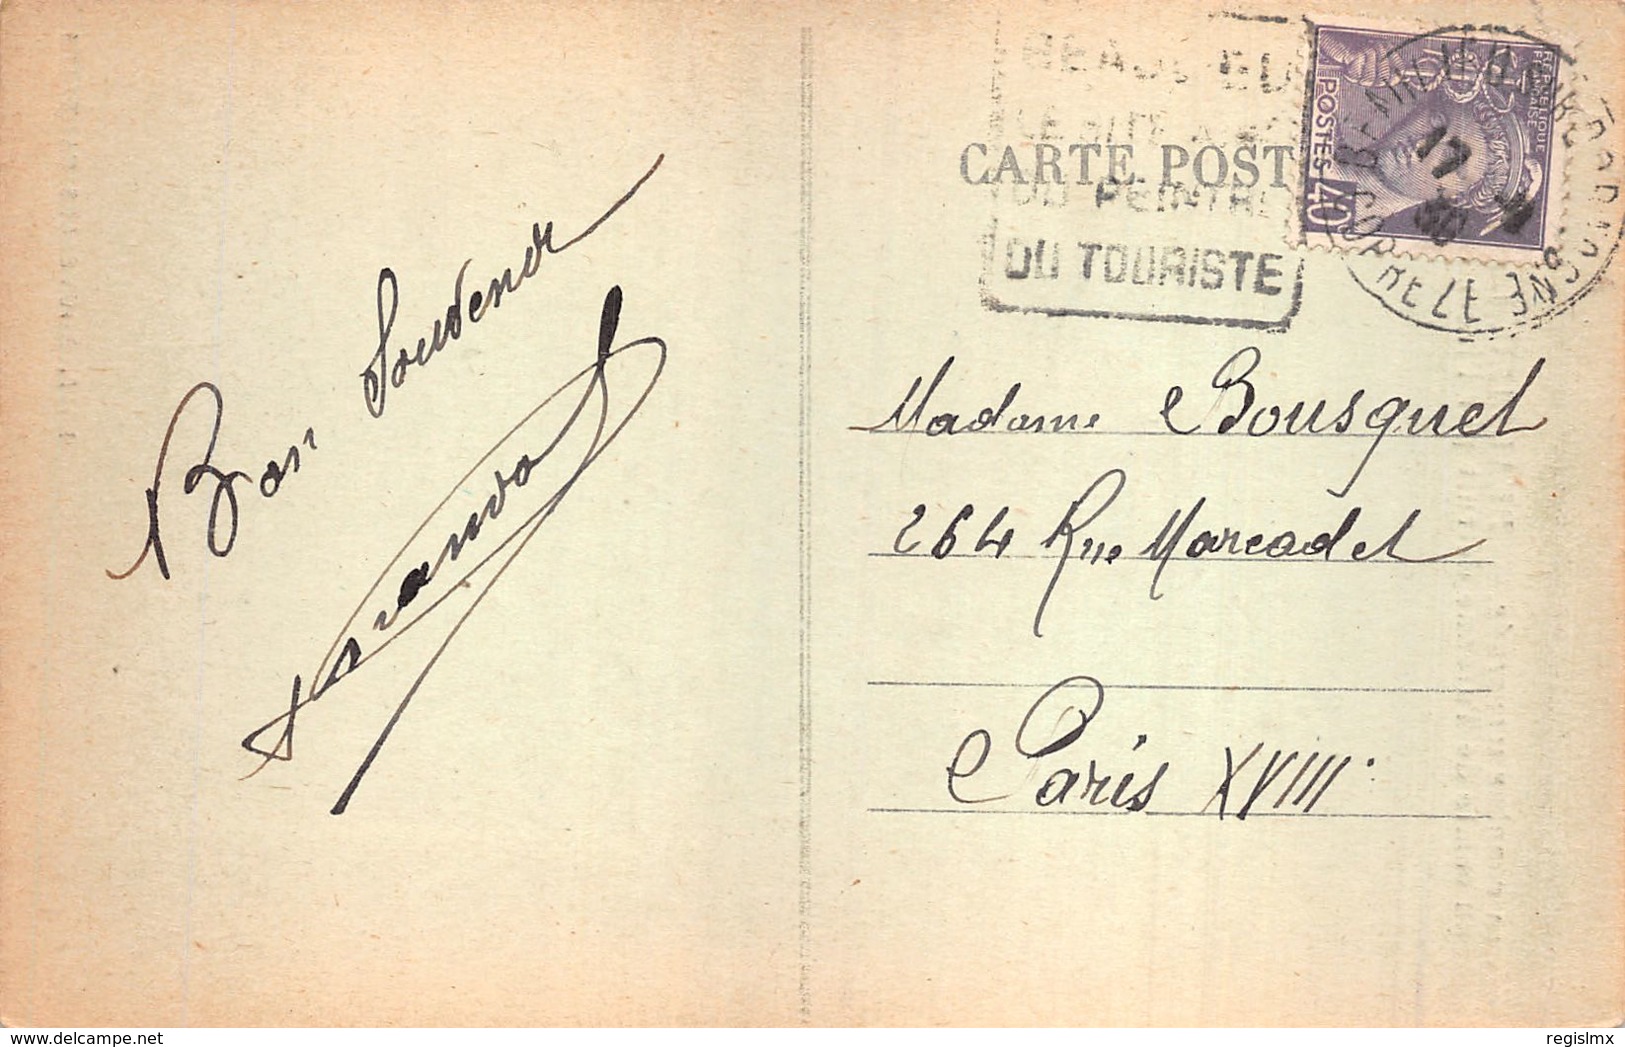 BEAULIEU
LE SITE AIMÉ
DU PEINTRE
DU TOURISTE
CARTE POST
RÉPUBLIQUE
FRANÇAISE
POSTES 40
BEAULIEU-SUR-DORDOGNE
CORRÈZE
17
Bon Souvenir
Madame Bousquet
264 Rue Marcadet
Paris XVIII
delcampe.net
regislmx